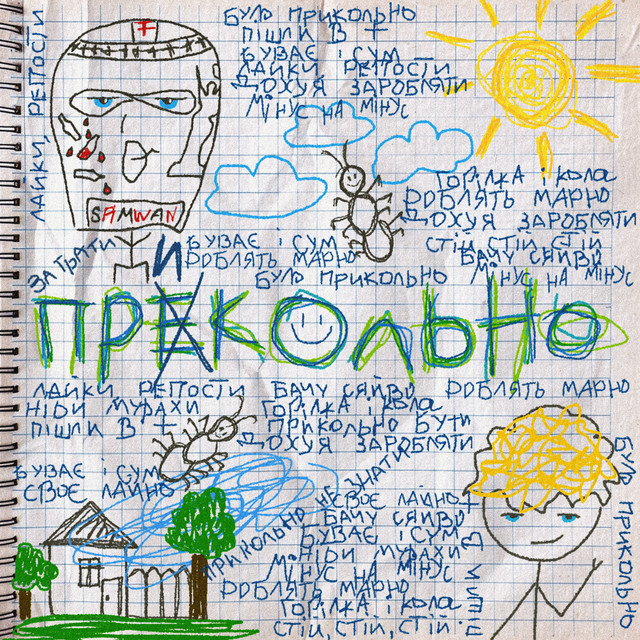 ЛАЙКИ, РЕПОСТИ
БУЛО ПРИКОЛЬНО
ПІШЛИ В +
БУВАЄ І СУМ
ЛАЙКИ РЕПОСТИ
ДОХУЯ ЗАРОБЛЯТИ
МІНУС НА МІНУС
SAMWAN
ГОРІЛКА І КОЛА
РОБЛЯТЬ МАРНО
ДОХУЯ ЗАРОБЛЯТИ
СТІЙ, СТІЙ, СТІЙ
БАЧУ СЯЙВО
МІНУС НА МІНУС
БУВАЄ І СУМ
РОБЛЯТЬ МАРНО
БУЛО ПРИКОЛЬНО
И
ПРЕКОЛЬНО
ЛАЙКИ РЕПОСТИ
БАЧУ СЯЙВО
РОБЛЯТЬ МАРНО
НІБИ МУРАХИ
ГОРІЛКА І КОЛА
ПІШЛИ В +
ПРИКОЛЬНО БУТИ
ДОХУЯ ЗАРОБЛЯТИ
БУВАЄ І СУМ
СВОЄ ЛАЙНО
ПРИКОЛЬНО НЕ ЗНАТИ
СВОЄ ЛАЙНО
БАЧУ СЯЙВО
БУВАЄ І СУМ
НІБИ МУРАХИ
МІНУС НА МІНУС
РОБЛЯТЬ МАРНО
ГОРІЛКА І КОЛА
СТІЙ, СТІЙ, СТІЙ
БУЛО ПРИКОЛЬНО